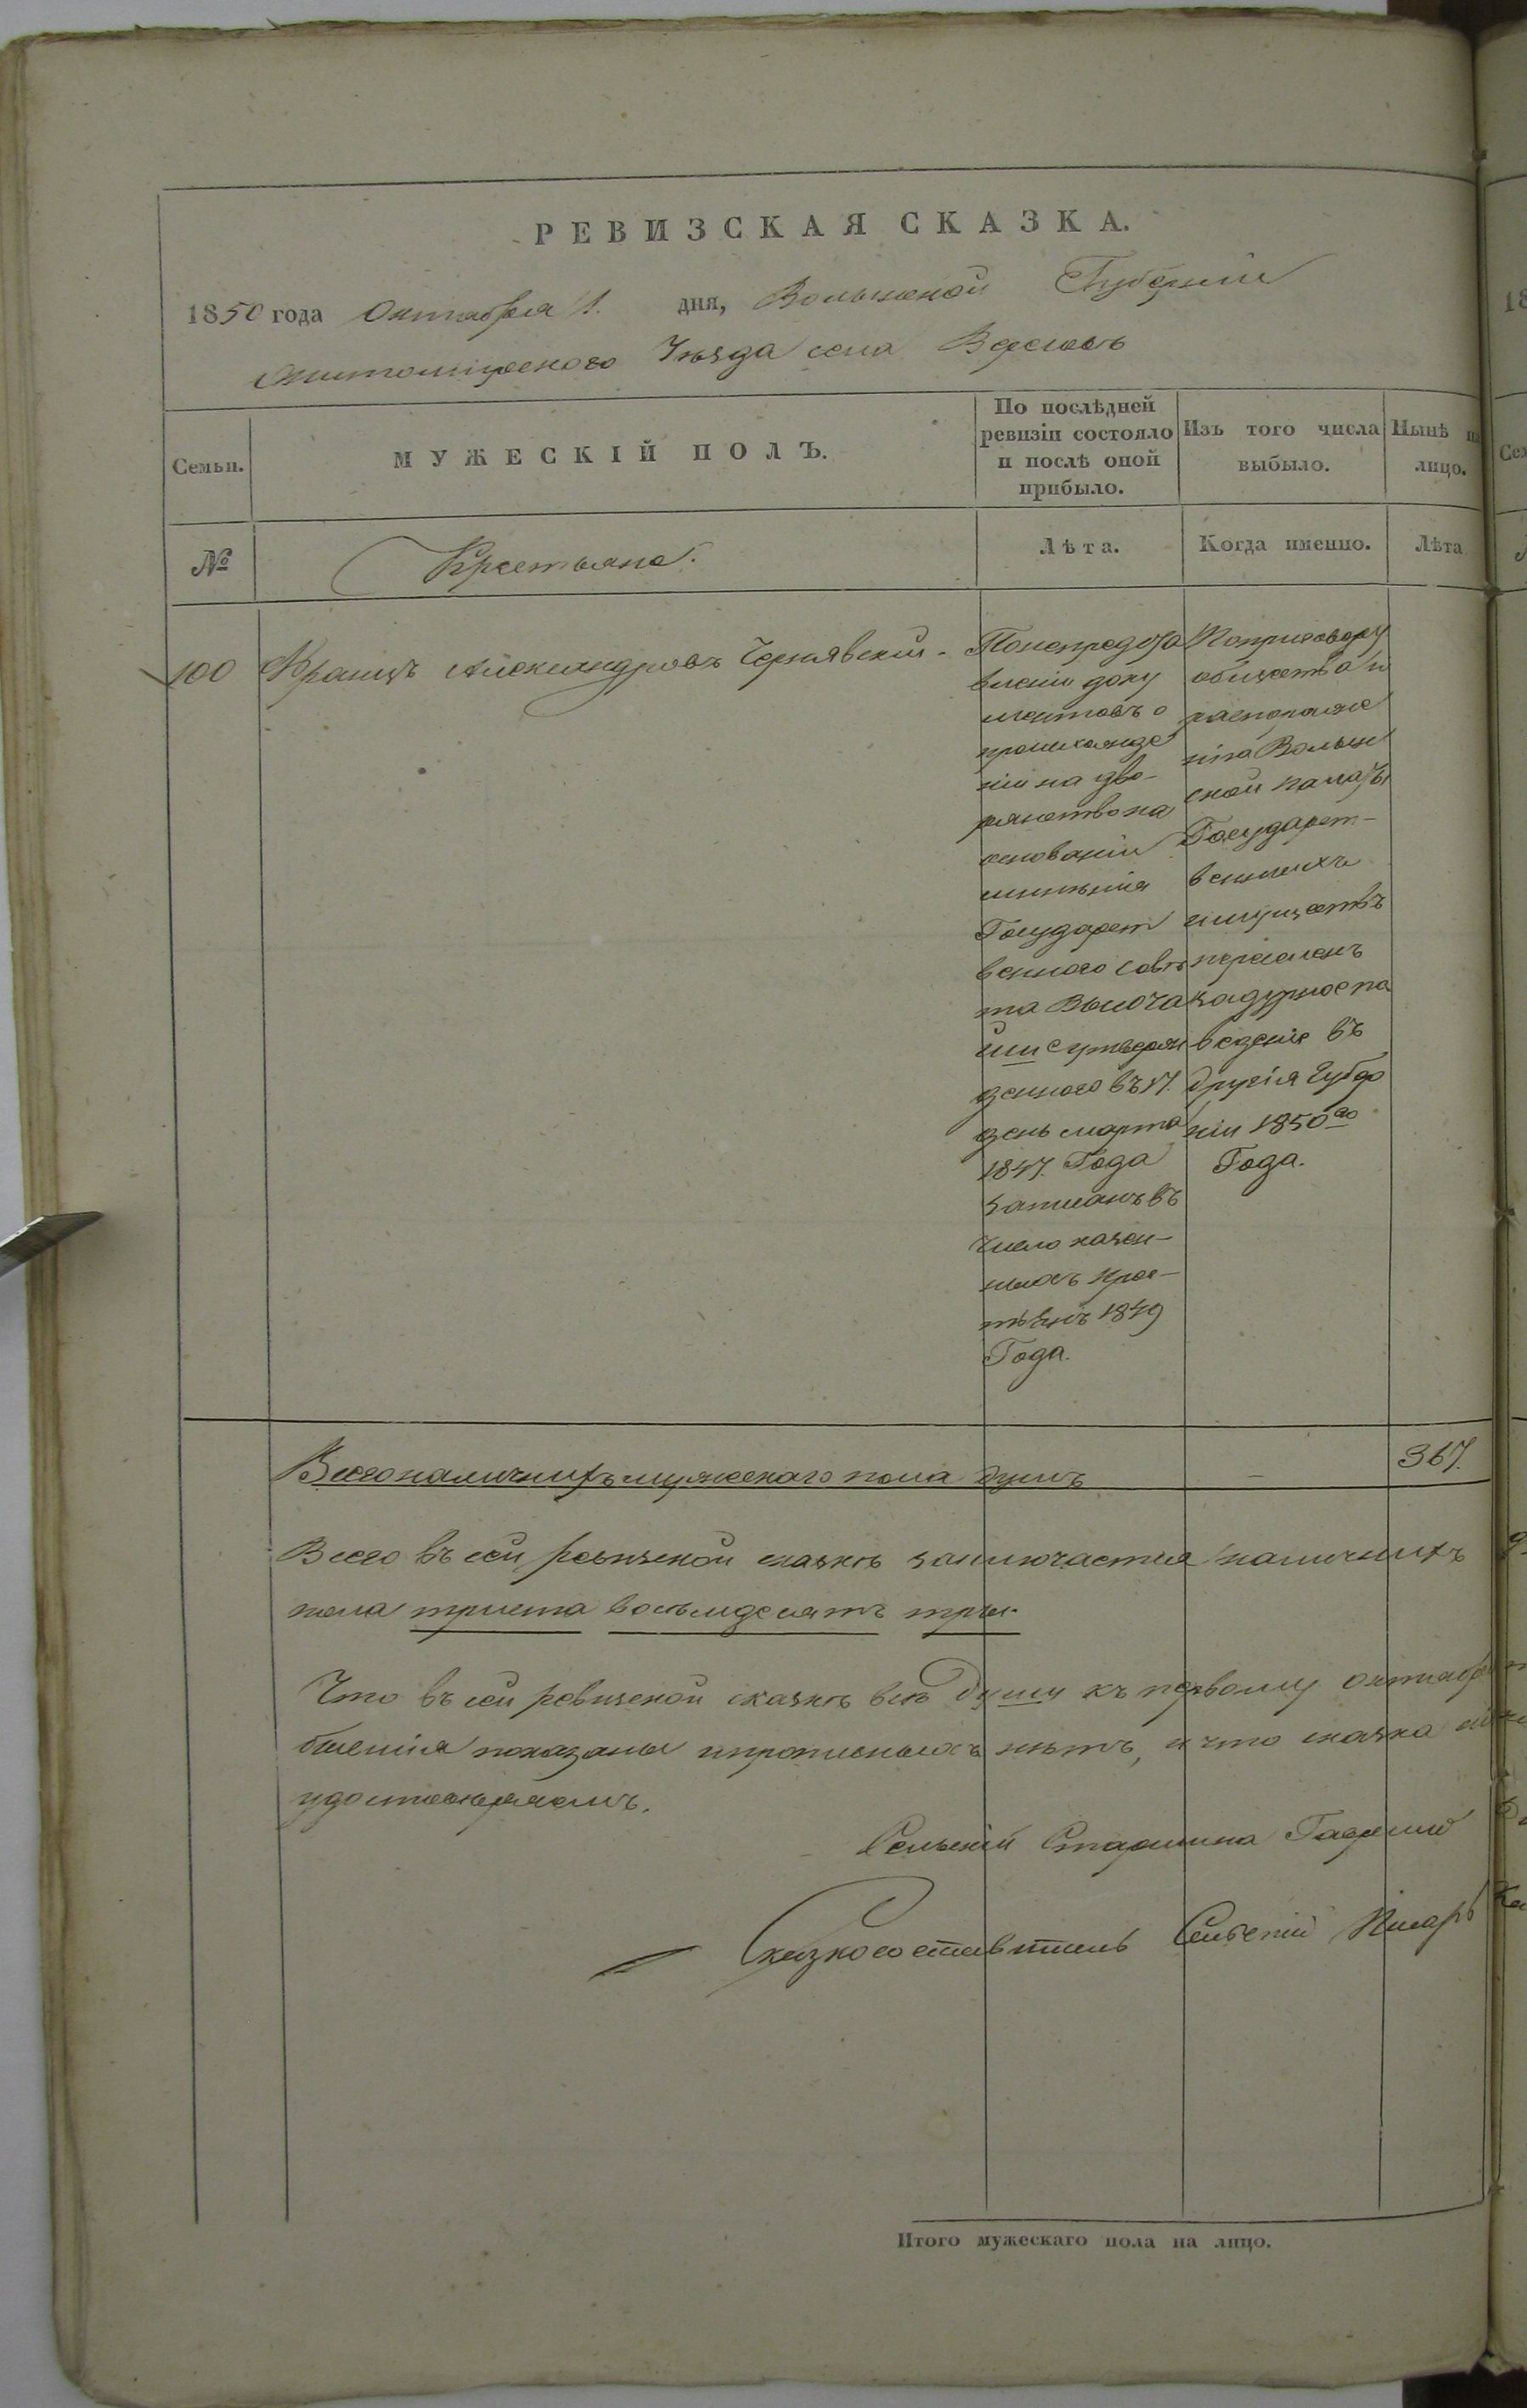 РЕВИЗСКАЯ СКАЗКА.
1850 года Октября 1. дня, Волынской Губерніи
Житомірского Уѣзда села Вересовъ
Семьи.
МУЖЕСКІЙ ПОЛЪ.
По послѣдней
ревизіи состояло
и послѣ оной
прибыло.
Изъ того числа
выбыло.
Нынѣ на
лицо.
№
Крестьяне.
Лѣта.
Когда именно.
Лѣта
100 Францъ Александровъ Чернявскій -
Понепредста
вленіи доку
ментовъ о
происхожде
ніи на дво-
рянство на
основаніи
мнѣнія
Государст
венного Совѣ
та Высоча
йше утверж
денного въ 17.
день марта
1847. Года
записанъ въ
число казен-
ныхъ крес-
тьянъ 1849
Года.
Поприговору
общества и
распоряже
нія Волын
ской палаты
Государст-
венныхъ
имуществъ
переселенъ
задурное по
веденіе въ
другія Губер
ніи 1850го
Года.
Всего наличныхъ мужескаго пола душъ - 367.
Всего въ сей ревизской сказкѣ заключается наличныхъ
пола триста восьмдесятъ три.
Что въ сей ревизской сказкѣ всѣ души къ первому октября
бленія показаны и прописныхъ нѣтъ, и что сказка сія
удостовѣряемъ.
Сельскій Старшина Гаврило
Сказкосоставитель Сельскій Писарь
Итого мужескаго пола на лицо.